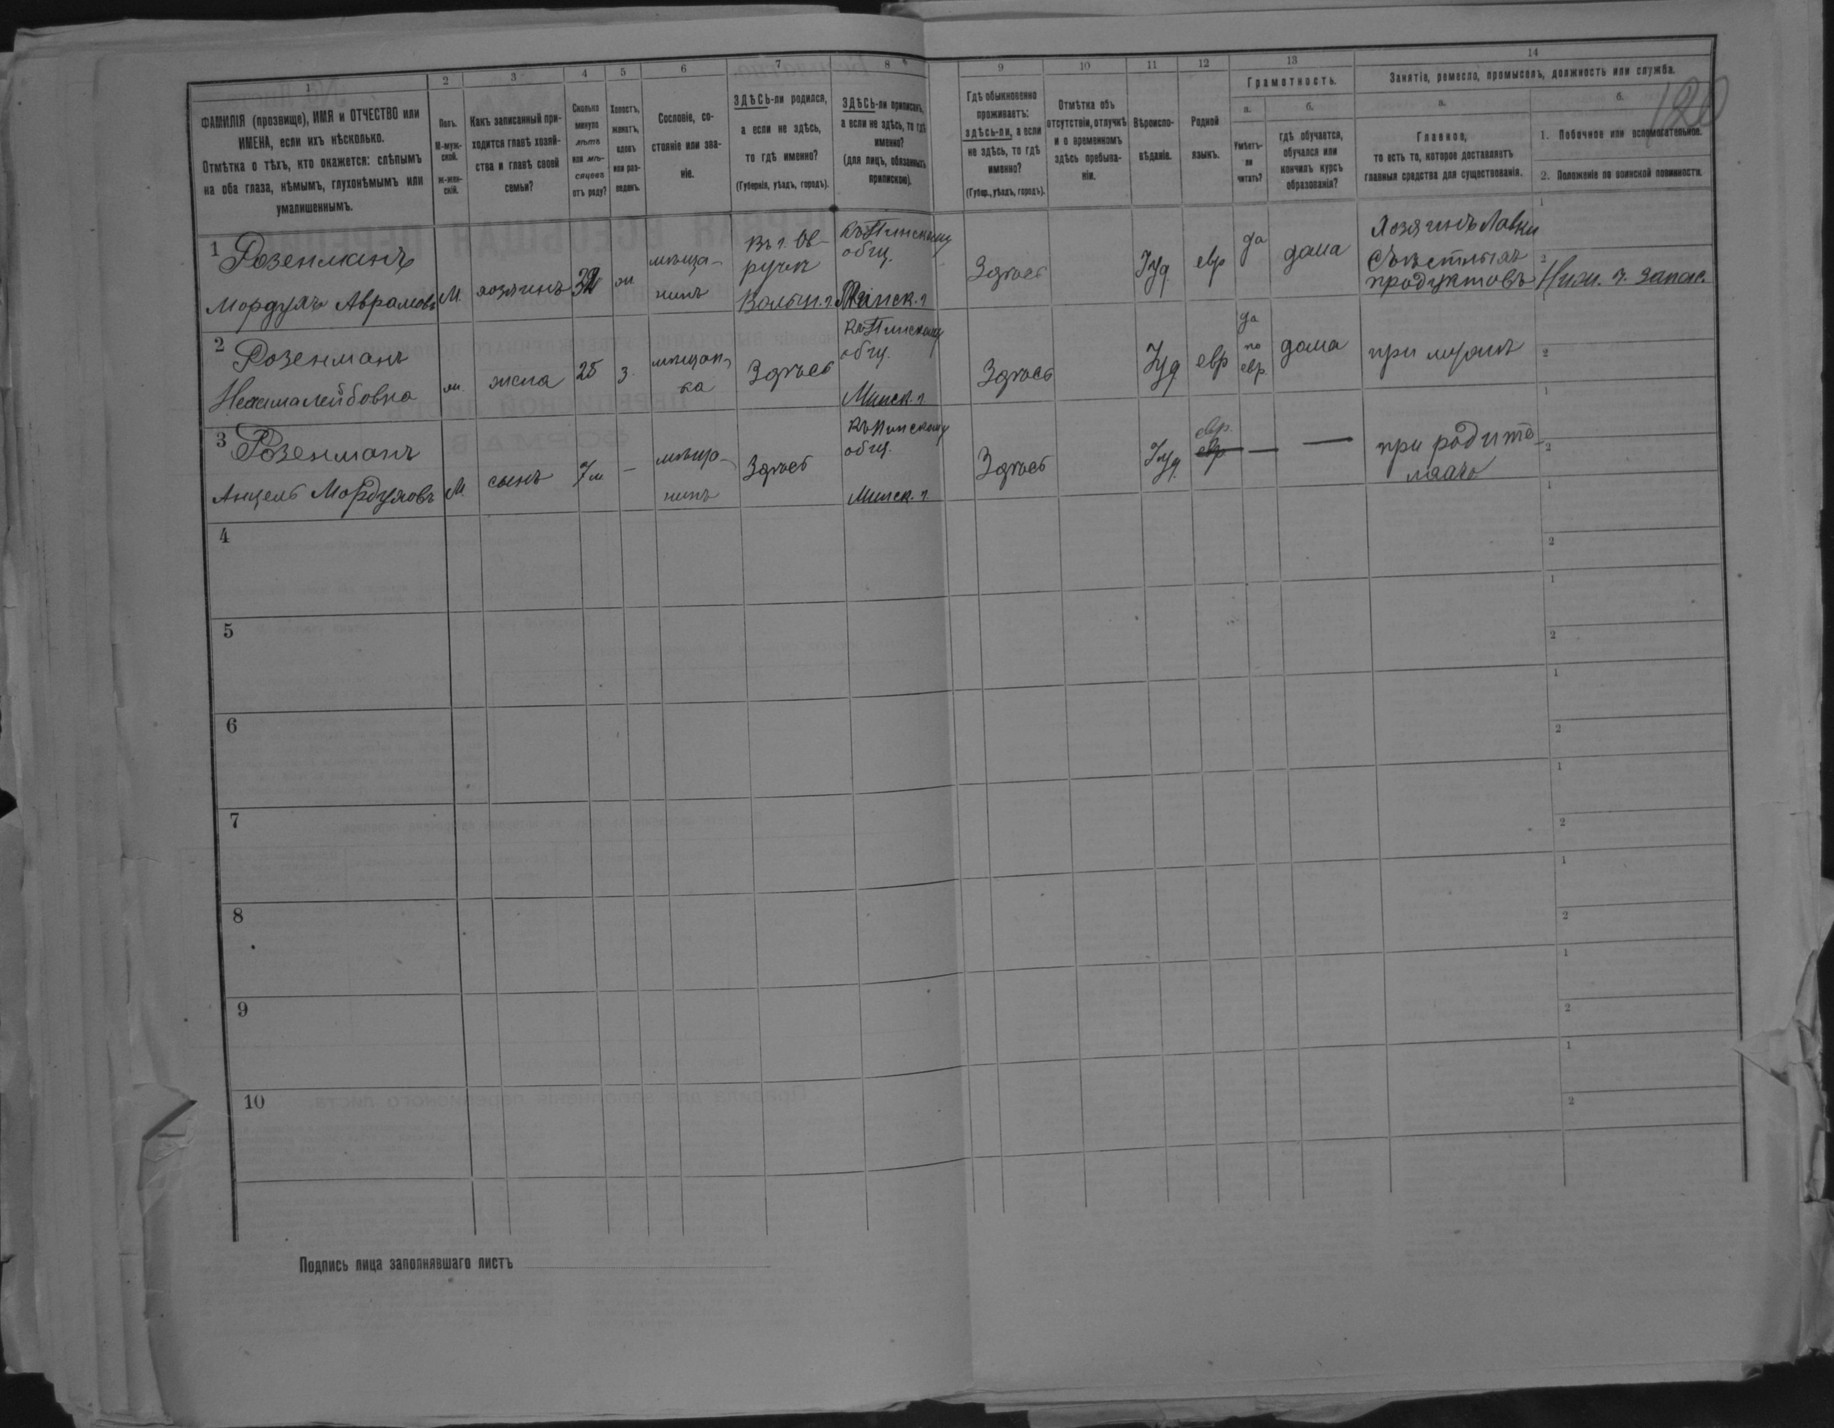 120
1 2 3 4 5 6 7 8 9 10 11 12 13 14
ФАМИЛІЯ (прозвище), ИМЯ и ОТЧЕСТВО или
ИМЕНА, если ихъ нѣсколько.
Отмѣтка о тѣхъ, кто окажется: слѣпымъ
на оба глаза, нѣмымъ, глухонѣмымъ или
умалишеннымъ.
Полъ.
М-муж-
ской.
Ж-жен-
скій.
Какъ записанный при-
ходится главѣ хозяй-
ства и главѣ своей
семьи?
Сколько
минуло
лѣтъ
или мѣ-
сяцевъ
отъ роду?
Холостъ,
женатъ,
вдовъ
или раз-
веденъ.
Сословіе, со-
стояніе или зва-
ніе.
ЗДѢСЬ-ли родился,
а если не здѣсь,
то гдѣ именно?
(Губернія, уѣздъ, городъ).
ЗДѢСЬ-ли приписанъ,
а если не здѣсь, то гдѣ
именно?
(для лицъ, обязанныхъ
припискою).
Гдѣ обыкновенно
проживаетъ:
здѣсь-ли, а если
не здѣсь, то гдѣ
именно?
(Губер., уѣздъ, городъ).
Отмѣтка объ
отсутствіи, отлучкѣ
и о временномъ
здѣсь пребыва-
ніи.
Вѣроиспо-
вѣданіе.
Родной
языкъ.
Грамотность.
а.
Умѣетъ-
ли
читать?
б.
гдѣ обучается,
обучался или
кончилъ курсъ
образованія?
Занятіе, ремесло, промыселъ, должность или служба.
а.
Главное,
то есть то, которое доставляетъ
главныя средства для существованія.
б.
1. Побочное или вспомогательное.
2. Положеніе по воинской повинности.
1 Розенманъ
Мордухъ Аврамовъ
М.
хозяинъ
ж
мѣща-
нинъ
Въ г. Ов-
ручѣ
Волын. г.
Къ Пинскому
общ.
Минск. г
Здѣсь
Іуд
евр
да
дома
Хозяинъ Лавки
Съѣстныхъ
продуктовъ
1
2
Ниж. ч. запас.
2 Розенманъ
ж.
жена
25
з.
мѣщан-
ка
Здѣсь
Къ Пинскому
общ.
Минск. г
Здѣсь
Іуд
евр
да
по
евр
дома
при мужѣ
2
3 Розенманъ
Анцель Мордуховъ
М.
сынъ
7 м
—
мѣща-
нинъ
Здѣсь
Къ Пинскому
общ.
Минск. г.
Здѣсь
Іуд.
евр.
евр
—
—
при родите-
ляхъ
1
2
4
1
2
5
1
2
6
1
2
7
1
2
8
1
2
9
1
2
10
1
2
Подпись лица заполнявшаго листъ